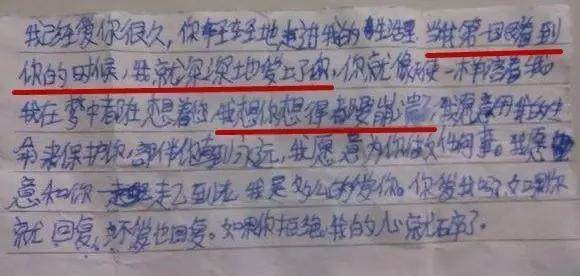 我已经爱你很久，你轻轻地走进我的生活里，当我第一回看到
你的时候，我就深深地爱上了你，你就像天使一木羊害着我
我在梦中都在想着你，我想你想得都要崩溃，我愿意用我的生
命来保护你，部伴你直到永远，我愿意为你做任何事。我愿
意和你一走到老我是多么的爱你。你爱我吗？如果你
就回复，不爱也回复。如果你拒绝，我的心就石卒了。